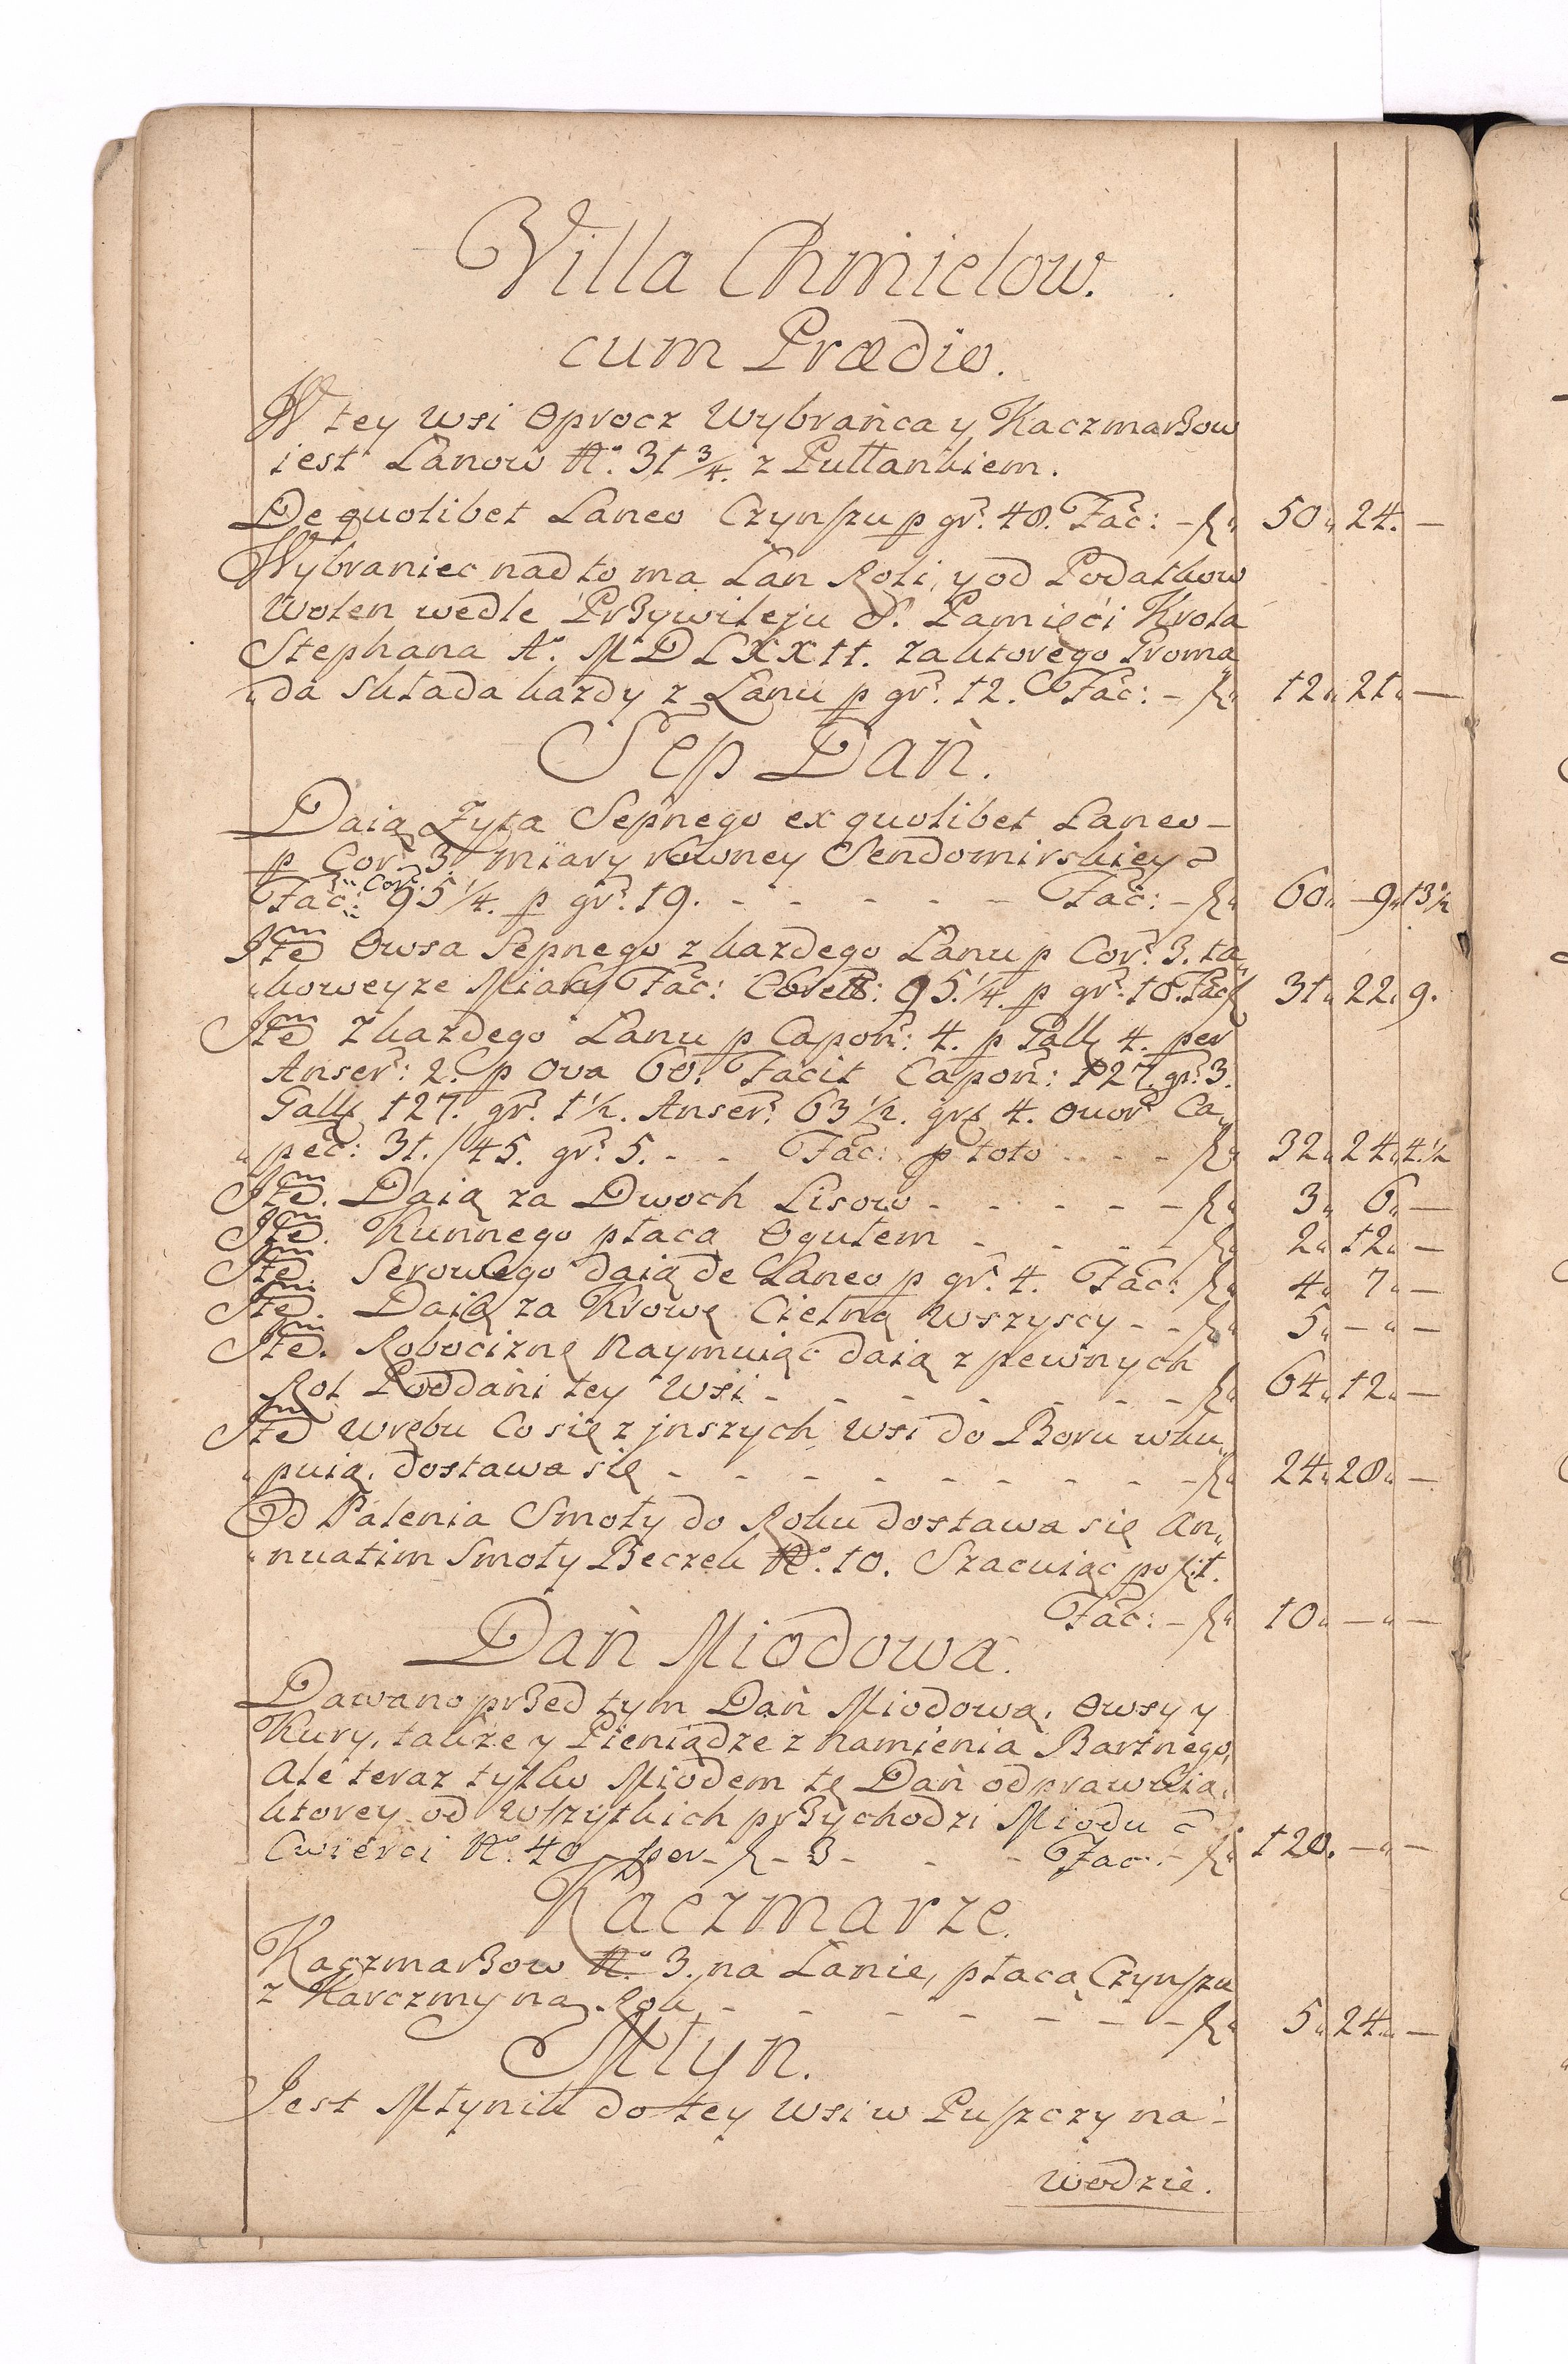 Villa Chmielow.
cum Prædio.
W tey wsi oprocz Wybrańca y Kaczmarzow
iest Łanow No. 31 3/4. z Pułłankiem.
De quolibet Laneo Czynszu p gr. 48. Fac: - fl. 50. 24. —
Wybraniec nad to ma Łan Roli, y od Podatkow
wolen wedle Przywileju S. Pamięći Krola
Stephana Ao. MDLXXII. za ktorego Groma„
„da składa każdy z Łanu p gr. 12. Fac: - fl. 12. 21. —
Sep Dań.
Daią Żyta Sepnego ex quolibet Laneo -
p Cor. 3. miary rowney Sendomirskiey
Fac: Cor. 95 1/4. p gr. 19. - - - - - Fac: - fl. 60. 9. 13 1/2
Item Owsa Sepnego z każdego Łanu p Cor. 3. ta„
„koweyże Miary Fac: Coret: 95. 1/4. p gr. 10. Fac fl 31. 22. 9.
Item Z każdego Łanu p Capon: 4. p Gall 4. per
Anser: 2. p Ova 60. Facit Capon: 127. gr. 3.
Gall 127. gr. 1 1/2. Anser. 63 1/2. gr. 4. ouor. Ca„
„pec: 31./45. gr. 5. - - Fac: p toto - - - fl. 32. 24. 4. 1/2
Item. Daią za Dwoch Lisow - - - - - fl. 3. 6. —
Item. Kunnego płacą Ogułem - - - - fl. 2. 12. —
Item. Serowego daią de Laneo p gr. 4. Fac: fl. 4. 7. —
Item. Daią za Krowę Cielną wszyscy - - fl. 5. — —
Item. Robociznę Naymuiąc daią z pewnych
Rol Poddani tey Wsi - - - - - - - fl. 64. 12. —
Item wrębu Co się z jnszych wsi do Boru wku„
„puią, dostawa się - - - - - - - - fl. 24. 28. —
Od Palenia Smoły do Roku dostawa się An„
„nuatim Smoły Beczek No. 10. Szacuiąc po fl. 1.
Fac: - fl. 10. — —
Dań Miodowa.
Dawano przed tym Dań Miodową, owsy y
Kury, także y Pieniądze z namienia Bartnego,
Ale teraz tylko Miodem tę Dań odprawuią,
ktorey od wszytkich przychodzi Miodu
Cwierci No. 40 - per - fl - 3 - - - Fac: - fl. 120. — —
Kaczmarze.
Kaczmarzow No. 3. na Łanie, płacą Czynszu
z Karczmy na Rok - - - - - - - fl. 5. 24. —
Młyn.
Jest Młynik do tey wsi w Puszczy na -
wodzie.